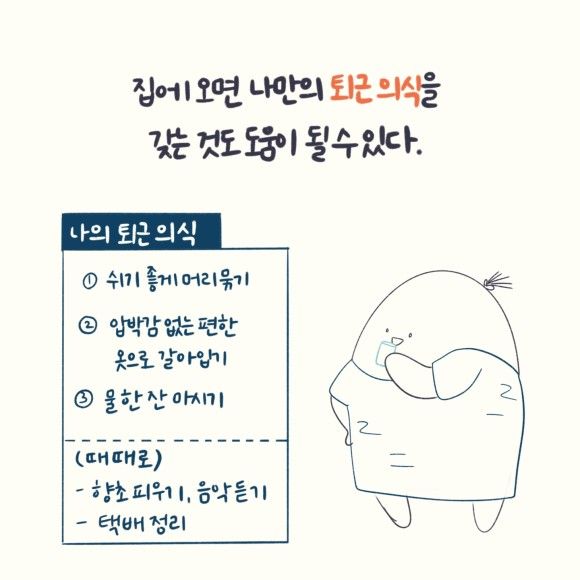 집에 오면 나만의 퇴근 의식을
갖는 것도 도움이 될 수 있다.
나의 퇴근 의식
① 쉬기 좋게 머리 묶기
② 압박감 없는 편한
옷으로 갈아입기
③ 물 한 잔 마시기
(때때로)
- 향초 피우기, 음악 듣기
- 택배 정리